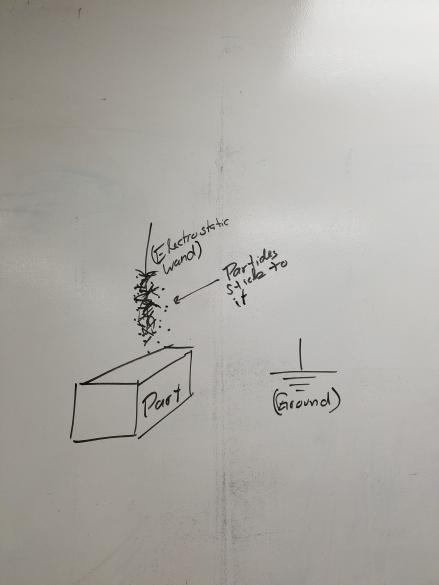 (Electrostatic
wand)
Particles
stick to
it
Part
(Ground)